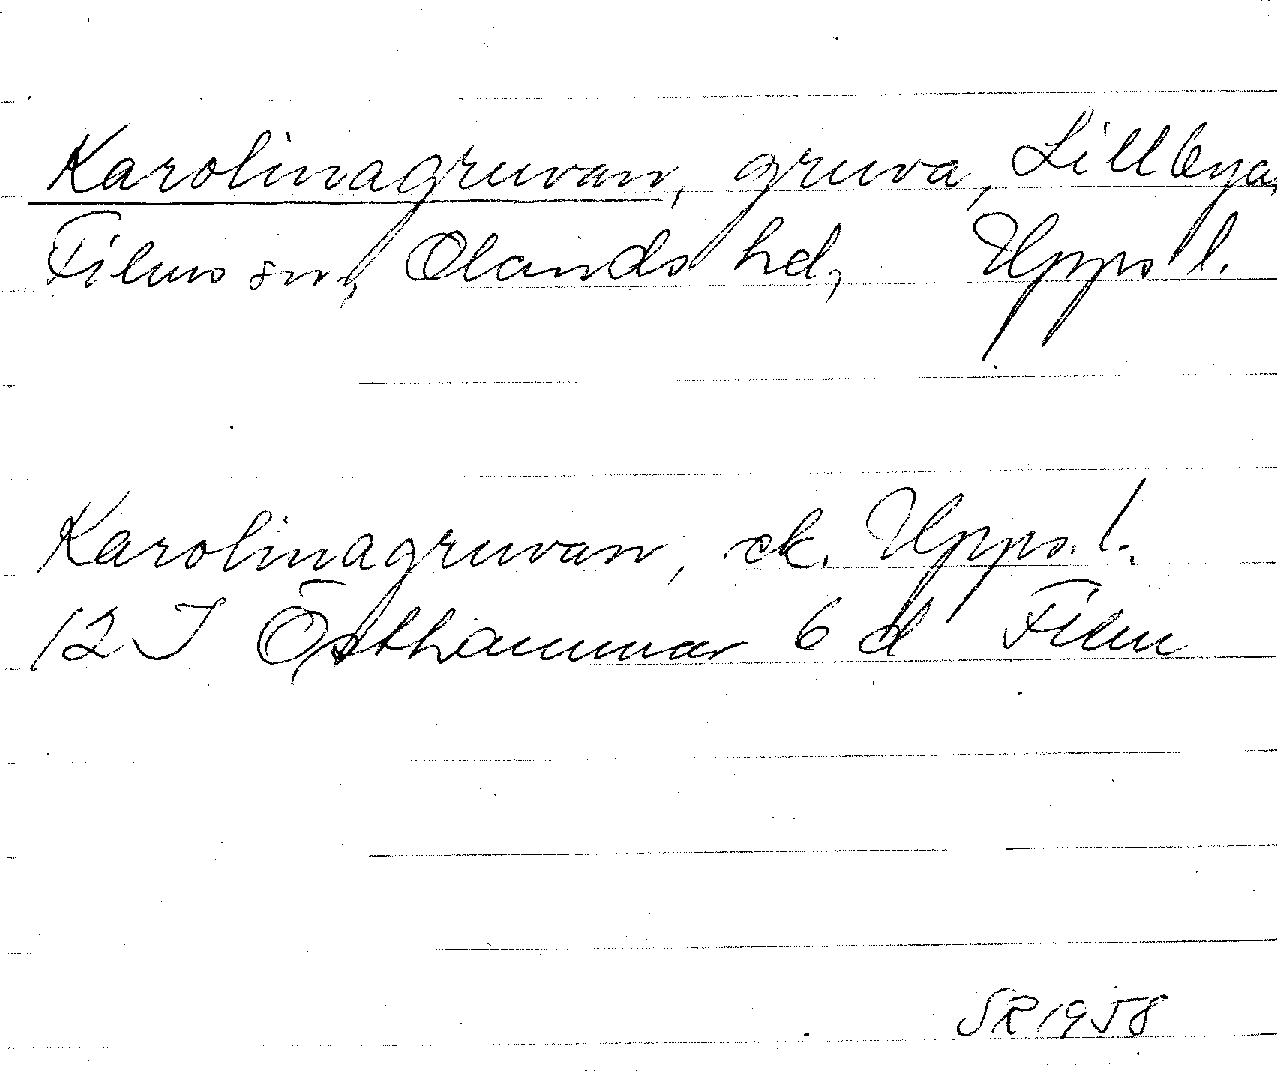 Karolinagruvan, gruva, Lillbya,
Films sn, Olands hd, Upps l.
Karolinagruvan, ek. Upps. l.
12 I Östhammar 6 d Film
SR 1958